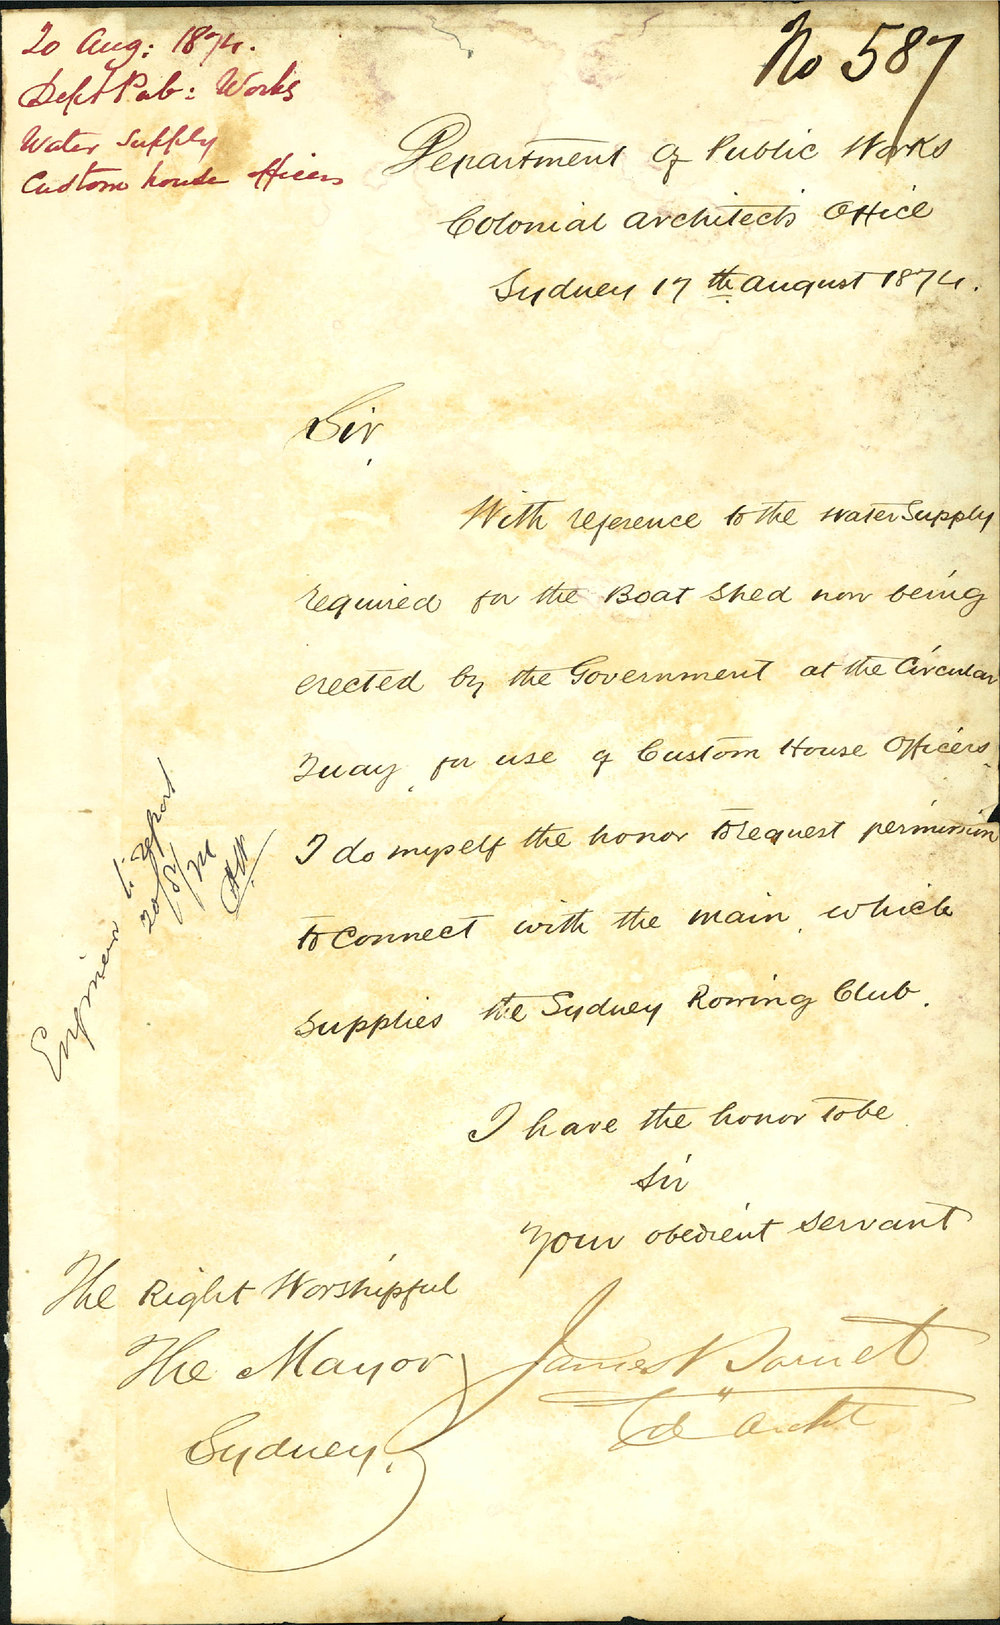 20 Aug: 1874.
Dept Pub: Works
Water Supply
Custom house officers
No 587
Department of Public Works
Colonial Architect's Office
Sydney 17th August 1874.
Sir,
With reference to the Water Supply
required for the Boat Shed now being
erected by the Government at the Circular
Quay, for use of Custom House Officers,
I do myself the honor to request permission
to connect with the main, which
supplies the Sydney Rowing Club.
I have the honor to be
Sir
Your obedient servant
James Barnet
Col Archt
The Right Worshipful
The Mayor
Sydney.
Engineer to report
20/8/74